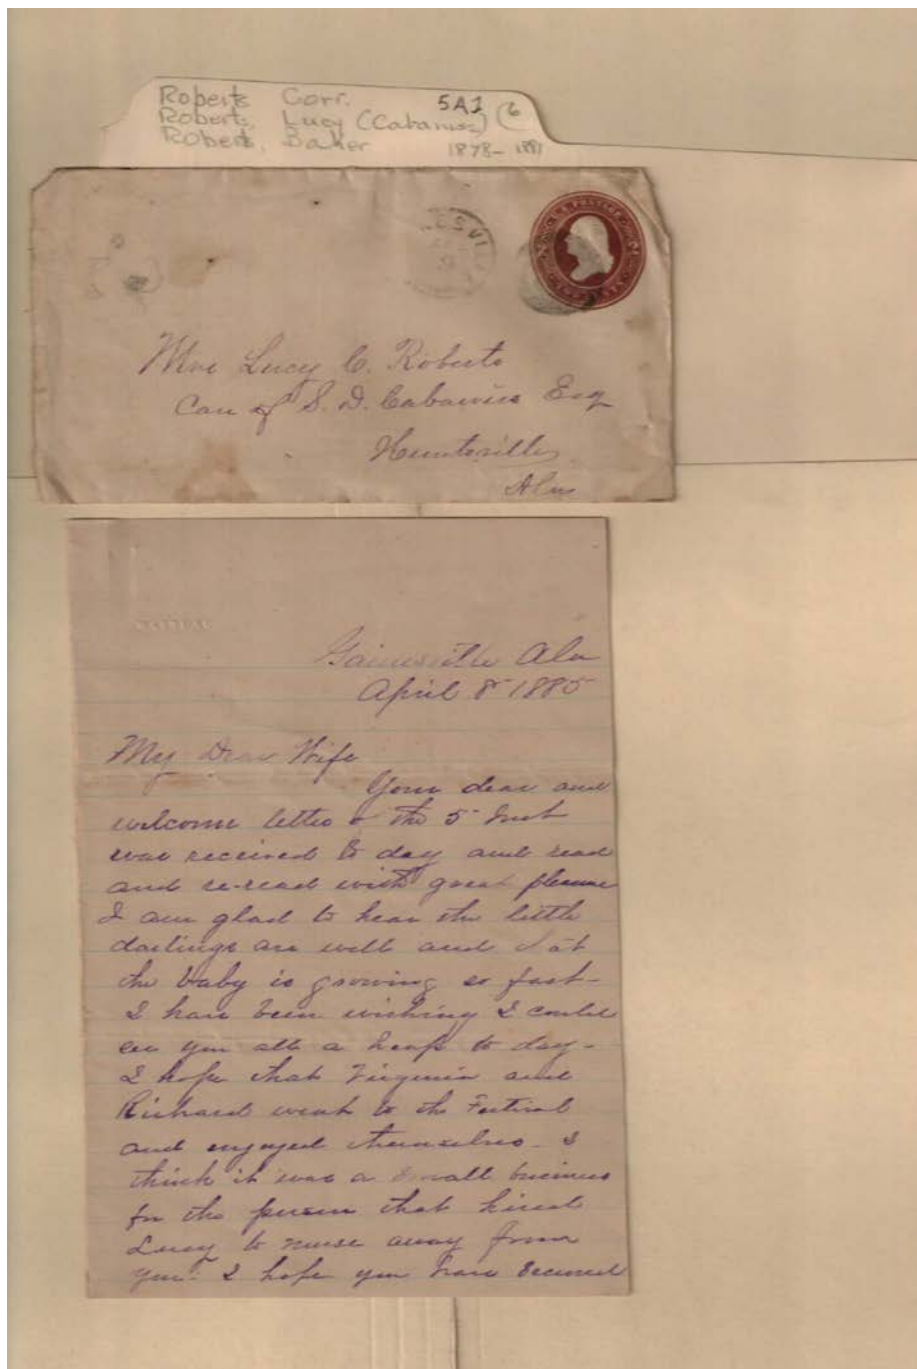 Roberts Corr. 5A1
Roberts, Lucy (Cabaniss) (6
Robert, Baker 1878-1881
U.S. POSTAGE
Mrs Lucy C. Roberts
Care of S. D. Cabaniss Esq
Huntsville
Ala
Gainesville Ala
April 8 1885
My Dear Wife
Your dear and
welcome letter of the 5 Inst
was received to day and read
and re-read with great pleasure
I am glad to hear the little
darlings are well and that
the baby is growing so fast-
I have been wishing I could
see you all a heap to day-
I hope that Virginia and
Richard went to the Festival
and enjoyed themselves. I
think it was a small business
for the person that hired
Lucy to nurse away from
you. I hope you have secured